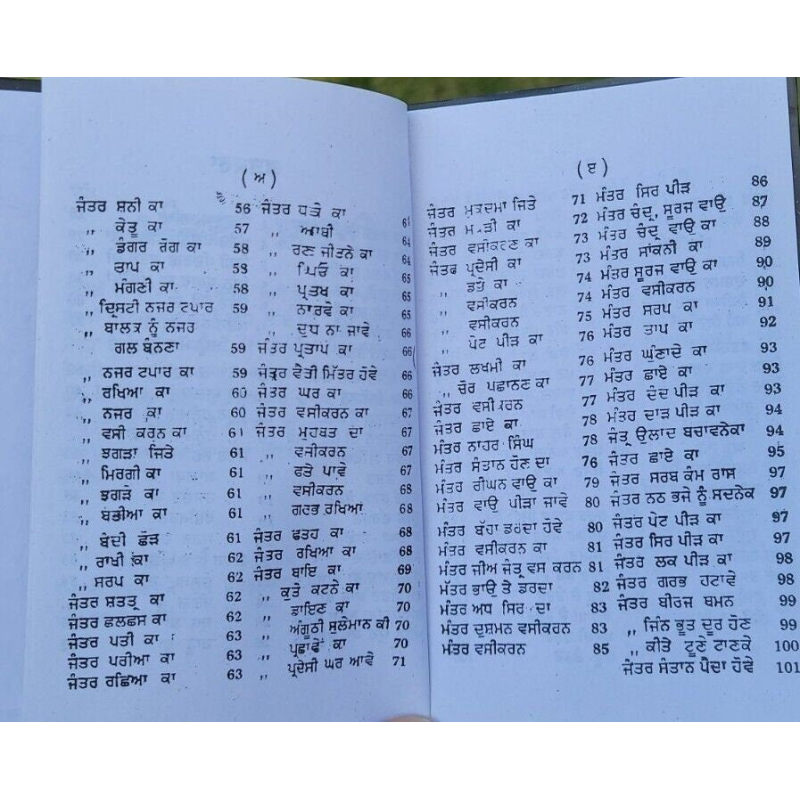 (ਅ)
ਜੰਤਰ ਸ਼ਨੀ ਕਾ 56
,, ਕੇਤੂ ਕਾ 57
,, ਡੰਗਰ ਰੋਗ ਕਾ 58
,, ਤਾਪ ਕਾ 58
,, ਮੰਗਣੀ ਕਾ 58
,, ਦ੍ਰਿਸਟੀ ਨਜਰ ਟਪਾਰ 59
,, ਬਾਲਕ ਨੂੰ ਨਜਰ
ਗਲ ਬੰਨਣਾ 59
,, ਨਜਰ ਟਪਾਰ ਕਾ 59
,, ਰਖਿਆ ਕਾ 60
,, ਨਜਰ ਕਾ 60
,, ਵਸੀ ਕਰਨ ਕਾ 61
,, ਝਗੜਾ ਜਿਤੇ 61
,, ਮਿਰਗੀ ਕਾ 61
,, ਝਗੜੇ ਕਾ 61
,, ਬਡੀਆ ਕਾ 61
,, ਬੰਦੀ ਛੋੜ 61
,, ਰਾਖੀ ਕਾ 62
,, ਸਰਪ ਕਾ 62
ਜੰਤਰ ਸ਼ਤਤ੍ਰ ਕਾ 62
ਜੰਤਰ ਛਲਛਸ ਕਾ 62
ਜੰਤਰ ਪਤੀ ਕਾ 63
ਜੰਤਰ ਪਰੀਆ ਕਾ 63
ਜੰਤਰ ਰਛਿਆ ਕਾ 63
ਜੰਤਰ ਧੜੇ ਕਾ
,, ਆਥੀ 64
,, ਰਣ ਜੀਤਨੇ ਕਾ 64
,, ਕਾ 65
,, ਪ੍ਰਤਖ ਕਾ 65
,, ਨਾਰਵੇ ਕਾ 65
,, ਦੁਧ ਨਾ ਜਾਵੇ 66
ਜੰਤਰ ਪ੍ਰਤਾਪ ਕਾ 66
ਜੰਤ੍ਰ ਵੈਤੀ ਮਿੱਤਰ ਹੋਵੇ 66
ਜੰਤਰ ਘਰ ਕਾ 66
ਜੰਤਰ ਵਸੀਕਰਨ ਕਾ 67
ਜੰਤਰ ਮੁਹਬਤ ਦਾ 67
,, ਵਸੀਕਰਨ 67
,, ਫਤੇ ਪਾਵੇ 67
,, ਵਸੀਕਰਨ 68
,, ਗਰਭ ਰਖਿਆਂ 68
ਜੰਤਰ ਫਤਹ ਕਾ 68
ਜੰਤਰ ਰਖਿਆ ਕਾ 68
ਜੰਤਰ ਬਾਇ ਕਾ 69
,, ਕੁਤੇ ਕਟਨੇ ਕਾ 70
,, ਡਾਇਣ ਕਾ 70
,, ਅੰਗੂਠੀ ਸੁਲੇਮਾਨ ਕੀ 70
,, ਪ੍ਰਛਾਵੇਂ ਕਾ 70
,, ਪ੍ਰਦੇਸੀ ਘਰ ਆਵੇ 71
(ੲ)
ਜੰਤਰ ਮੁਕਦਮਾ ਜਿਤੇ 71
ਜੰਤਰ ਕਾ 72
ਜੰਤਰ ਵਸੀਕਰਣ ਕਾ 73
ਜੰਤਰ ਪ੍ਰਦੇਸੀ ਕਾ 73
,, ਫਤੇ ਕਾ 74
,, ਵਸੀਕਰਨ 74
,, ਵਸੀਕਰਨ 75
,, ਪੇਟ ਪੀੜ ਕਾ 76
ਜੰਤਰ ਲਖਮੀ ਕਾ 76
,, ਚੋਰ ਪਛਾਨਣ ਕਾ 77
ਜੰਤਰ ਵਸੀਕਰਨ 77
ਜੰਤਰ ਛਾਏ ਕਾ 78
ਮੰਤਰ ਨਾਹਰ ਸਿੰਘ 78
ਮੰਤਰ ਸੰਤਾਨ ਹੋਣ ਦਾ 76
ਮੰਤਰ ਰੀਘਨ ਵਾਉ ਕਾ 79
ਮੰਤਰ ਵਾਉ ਪੀੜਾ ਜਾਵੇ 80
ਮੰਤਰ ਬੱਹਾ ਡਰਦਾ ਹੋਵੇ 80
ਮੰਤਰ ਵਸੀਕਰਨ ਕਾ 81
ਮੰਤਰ ਜੀਅ ਜੰਤ੍ਰ ਵਸ ਕਰਨ 81
ਮੰਤਰ ਭਾਉ ਤੇ ਡਰਦਾ 82
ਮੰਤਰ ਅਧ ਸਿਰ ਦਾ 83
ਮੰਤਰ ਦੁਸ਼ਮਨ ਵਸੀਕਰਨ 83
ਮੰਤਰ ਵਸੀਕਰਨ 85
ਮੰਤਰ ਸਿਰ ਪੀੜ 86
ਮੰਤਰ ਚੰਦ੍ਰ, ਸੂਰਜ ਵਾਉ 87
ਮੰਤਰ ਚੰਦ੍ਰ ਵਾਉ ਕਾ 88
ਮੰਤਰ ਸਾਂਕਨੀ ਕਾ 89
ਮੰਤਰ ਸੂਰਜ ਵਾਉ ਕਾ 90
ਮੰਤਰ ਵਸੀਕਰਨ 90
ਮੰਤਰ ਸਰਪ ਕਾ 91
ਮੰਤਰ ਤਾਪ ਕਾ 92
ਮੰਤਰ ਘੁੰਣਾਦੇ ਕਾ 93
ਮੰਤਰ ਛਾਏ ਕਾ 93
ਮੰਤਰ ਦੰਦ ਪੀੜ ਕਾ 93
ਮੰਤਰ ਦਾੜ ਪੀੜ ਕਾ 94
ਜੰਤ੍ਰ ਉਲਾਦ ਬਚਾਵਨੇਕਾ 94
ਜੰਤਰ ਛਾਏ ਕਾ 95
ਜੰਤਰ ਸਰਬ ਕੰਮ ਰਾਸ 97
ਜੰਤਰ ਨਠ ਭਜੇ ਨੂੰ ਸਦਨੇਕ 97
ਜੰਤਰ ਪੇਟ ਪੀੜ ਕਾ 97
ਜੰਤਰ ਸਿਰ ਪੀੜ ਕਾ 97
ਜੰਤਰ ਲਕ ਪੀੜ ਕਾ 98
ਜੰਤਰ ਗਰਭ ਹਟਾਵੇ 98
ਜੰਤਰ ਬੀਰਜ ਥਮਨ 98
,, ਜਿੰਨ ਭੂਤ ਦੂਰ ਹੋਣ 99
,, ਕੀਤੇ ਟੂਣੇ ਟਾਣਕੇ 100
ਜੰਤਰ ਸੰਤਾਨ ਪੈਦਾ ਹੋਵੇ 101